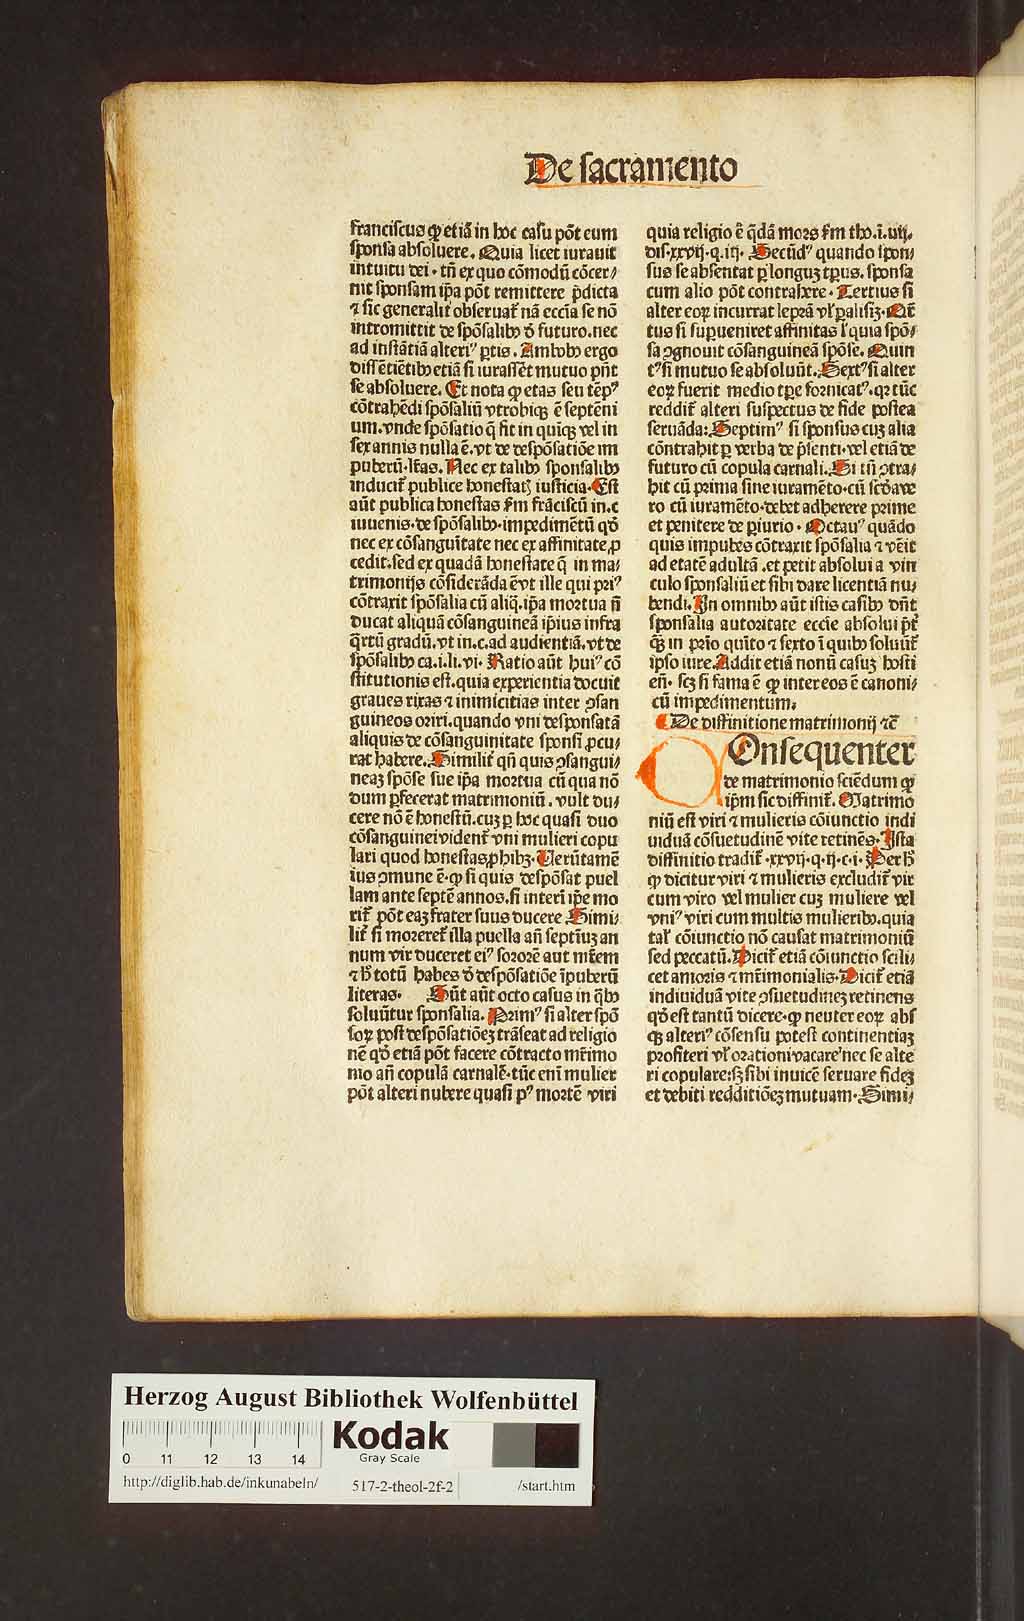 De sacramento
franciscus ꝙ etiã in hoc casu põt eum
sponsa absoluere. Quia licet iurauit
intuitu dei · tñ ex quo cõmodũ cõcer⸗
nit sponsam ip̃a põt remittere p̃dicta
⁊ sic generalit᷑ obseruat᷑ nã eccl̃ia se nõ
intromittit de spõsalibꝰ ð futuro. nec
ad instãtiã alteriꝰ ꝑtis. Ambobꝰ ergo
dissẽtiẽtibꝰ etiã si iurassẽt mutuo pñt
se absoluere. Et nota ꝙ etas seu tẽpꝰ
cõtrahẽdi spõsaliũ vtrobiqꝫ ẽ septẽni
um. vnde spõsatio q̃ fit in quiqꝫ vel in
sex annis nulla ẽ. vt de despõsatiõe im
puberũ. lr̃as. Nec ex talibꝰ sponsalibꝰ
inducit᷑ publice honestatꝭ iusticia. Est
aũt publica honestas ẜm frãciscũ in. c
iuuenis. de spõsalibꝰ · impedimẽtũ qð
nec ex cõsanguĩtate nec ex affinitate ꝓ
cedit. sed ex quadã honestate q̃ in ma⸗
trimonijs cõsiderãda ẽ vt ille qui priꝰ
cõtraxit spõsalia cũ aliq̃. ip̃a mortua ñ
ducat aliquã cõsanguineã ip̃ius infra
q̃rtũ gradũ. vt in. c. ad audientiã. vt de
spõsalibꝰ ca. i. li. vi · Ratio aũt huiꝰ cõ
stitutionis est. quia experientia docuit
graues rixas ⁊ inimicitias inter ꝯsan
guineos oriri. quando vni desponsatã
aliquis de cõsanguinitate sponsi ꝓcu⸗
rat habere. Similit᷑ qñ quis ꝯsangui⸗
neaꝫ spõse sue ip̃a mortua cũ qua nõ
dum ꝑfecerat matrimoniũ. vult du⸗
cere nõ ẽ honestũ. cuꝫ ꝑ hoc quasi duo
cõsanguinei vident᷑ vni mulieri copu
lari quod honestas ꝓhibꝫ · Uerũtamẽ
ius ꝯmune ẽ · ꝙ si quis despõsat puel
lam ante septẽ annos. si interĩ ip̃e mo
rit᷑ põt eaꝫ frater suus ducere Simi⸗
lit᷑ si moreret᷑ illa puella añ septiuꝫ an
num vir duceret eiꝰ sororẽ aut mr̃em
⁊ h̃ totũ habes ð despõsatiõe ĩpuberũ
literas. Sũt aũt octo casus in q̃bꝰ
soluũtur sponsalia. Primꝰ si alter spõ
soꝝ post despõsatiõeꝫ trãseat ad religio
nẽ qð etiã põt facere cõtracto mr̃imo
nio añ copulã carnalẽ · tũc enĩ mulier
põt alteri nubere quasi pꝰ mortẽ viri
quia religio ẽ q̃dã mors ẜm tho. ĩ. iiij.
dis. xxvij. q. iij. Secũdꝰ quando spon⸗
sus se absentat ꝑ longuꝫ tp̃us. sponsa
cum alio põt contrahere. Tertius si
alter eoꝝ incurrat leprã vl᷑ ꝑalisiꝫ. Q̃r
tus si supueniret affinitas l᷑ quia spõ⸗
sa ꝯgnouit cõsanguineã spõse. Quin
tꝰ si mutuo se absoluũt. Sextꝰ si alter
eoꝝ fuerit medio tp̃e fornicatꝰ. qꝛ tũc
reddit᷑ alteri suspectus de fide postea
seruãda: Septimꝰ si sponsus cuꝫ alia
cõtrahit ꝑ verba de p̃senti. vel etiã de
futuro cũ copula carnali. Si tñ ꝯtra⸗
hit cũ prima sine iuramẽto. cũ scðave
ro cũ iuramẽto. debet adherere prime
et penitere de ꝑiurio. Octauꝰ quãdo
quis impubes cõtraxit spõsalia ⁊ vẽit
ad etatẽ adultã. et petit absolui a vin
culo sponsaliũ et sibi dare licentiã nu⸗
bendi. In omnibꝰ aũt istis casibꝰ dñt
sponsalia autoritate eccl̃ie absolui p̃t᷑
qꝫ in prĩo quĩto ⁊ sexto ĩ quibꝰ soluũt᷑
ipso iure. Addit etiã nonũ casuꝫ hosti
eñ. scꝫ si fama ẽ ꝙ inter eos ẽ canoni⸗
cũ impedimentum.
De diffinitione matrimonij ⁊c̃
Onsequenter
de matrimonio sciẽdum ꝙ
ip̃m sic diffinit᷑. Matrimo
niũ est viri ⁊ mulieris cõiunctio indi
uiduã cõsuetudinẽ vite retinẽs. Ista
diffinitio tradit᷑ · xxvij. q. ij. c. i. Per h̃
ꝙ dicitur viri ⁊ mulieris excludit᷑ vir
cum viro vel mulier cuꝫ muliere vel
vniꝰ viri cum multis mulieribꝰ. quia
tal᷑ cõiunctio nõ causat matrimoniũ
sed peccatũ. Dicit᷑ etiã cõiunctio scili⸗
cet amoris ⁊ mr̃imonialis. Dicit᷑ etiã
indiuiduã vite ꝯsuetudineꝫ retinens
qð est tantũ dicere · ꝙ neuter eoꝝ abs
qꝫ alteriꝰ cõsensu potest continentiaꝫ
profiteri vl᷑ orationi vacare nec se alte
ri copulare: sꝫ sibi inuicẽ seruare fideꝫ
et debiti redditiõeꝫ mutuam. Simi⸗
Herzog August Bibliothek Wolfenbüttel
0 11 12 13 14
Kodak
Gray Scale
http://diglib.hab.de/inkunabeln/ 517-2-theol-2f-2 /start.htm